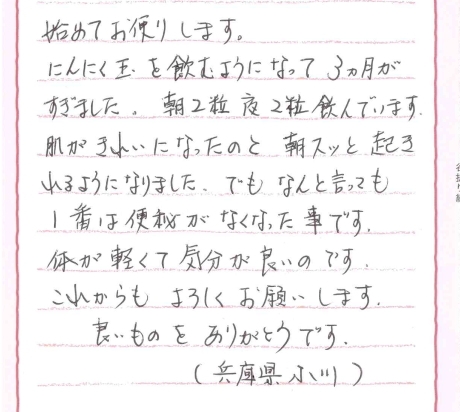 始めてお便りします。
にんにく玉を飲むようになって3ヵ月が
すぎました。朝2粒夜2粒飲んでいます.
肌がきれいになったのと朝スッと起き
れるようになりました. でもなんと言っても
1番は便秘がなくなった事です.
体が軽くて気分が良いのです.
これからもよろしくお願いします.
良いものをありがとうです.
(兵庫県 小川)